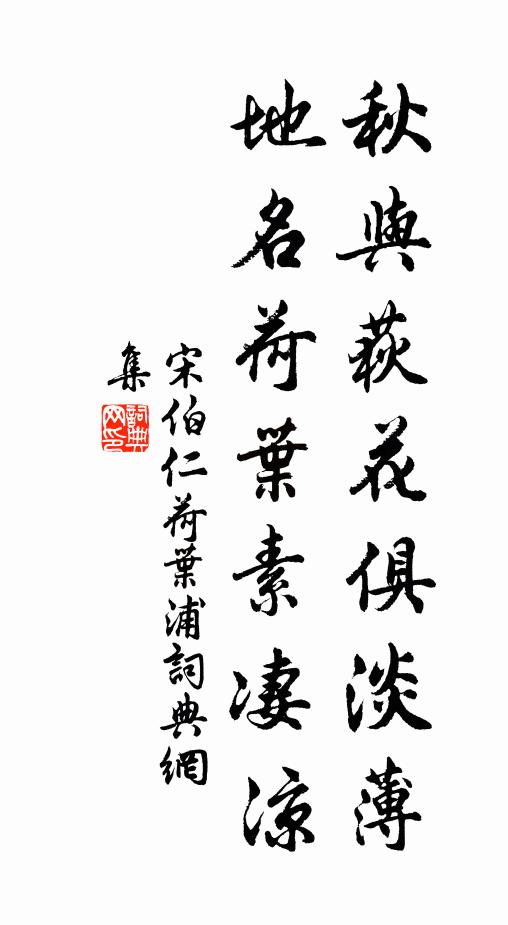 秋與荻花俱淡薄
地名荷葉素凄凉
宋伯仁荷葉浦詞典網
集
詞典
网印